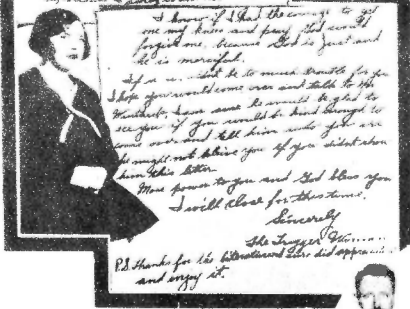 I know if I had the courage to get
on my knees and pray God would
forgive me, because God is just and
He is merciful.
If it would not be to much trouble for you
I hope you would come over and talk to Mr
I am sure he would be glad to
see you if you would be kind enough to
come over and tell him who you are
he might not believe you if you didnt show
him this letter.
More power to you and God bless you
I will close for this time.
Sincerely
The Trigger Woman
P.S. Thanks for the literature sure did appreciate
and enjoy it.